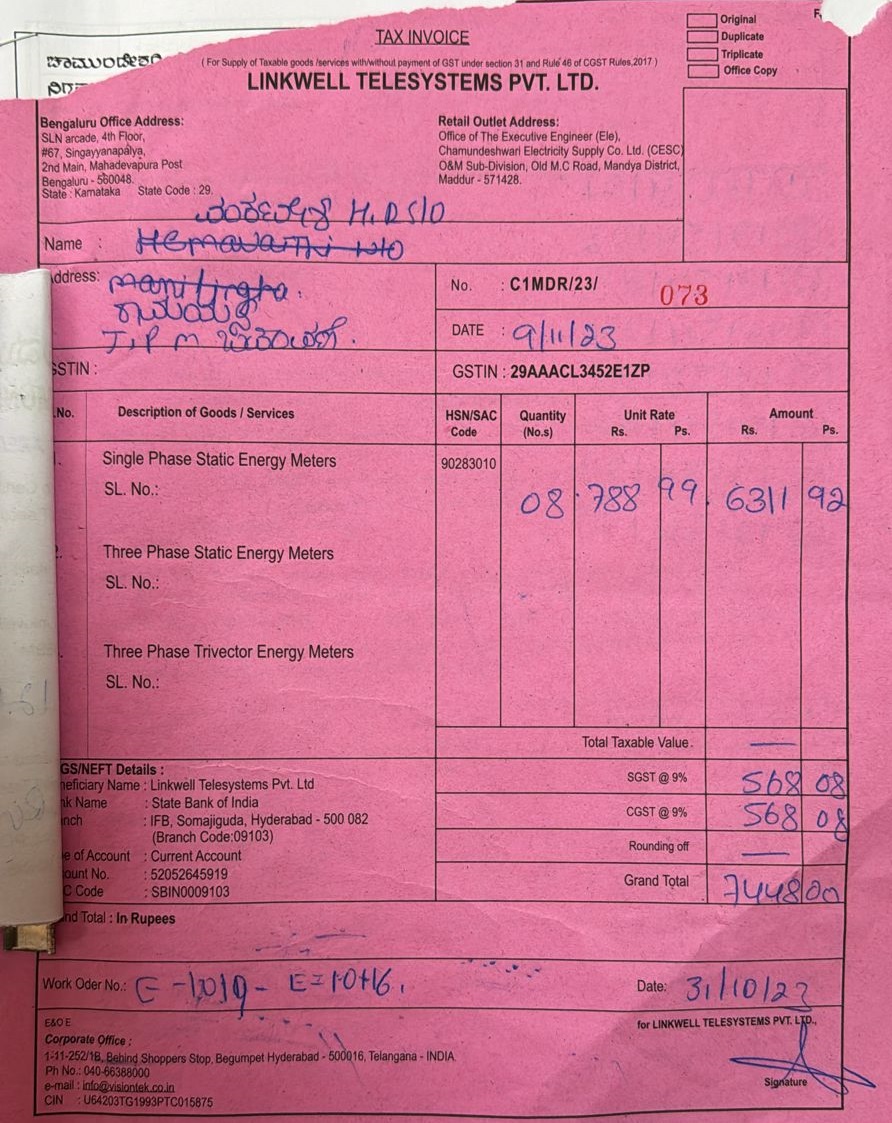 TAX INVOICE
( For Supply of Taxable goods /services with/without payment of GST under section 31 and Rule 46 of CGST Rules,2017 )
LINKWELL TELESYSTEMS PVT. LTD.
Original
Duplicate
Triplicate
Office Copy
Bengaluru Office Address:
SLN arcade, 4th Floor,
#67, Singayyanapalya,
2nd Main, Mahadevapura Post
Bengaluru - 560048.
State : Karnataka State Code : 29.
Retail Outlet Address:
Office of The Executive Engineer (Ele),
Chamundeshwari Electricity Supply Co. Ltd. (CESC)
O&M Sub-Division, Old M.C Road, Mandya District,
Maddur - 571428.
H.D S/O
Name :
ddress:
No. : C1MDR/23/ 073
DATE : 9/11/23
GSTIN :
GSTIN : 29AAACL3452E1ZP
.No. Description of Goods / Services HSN/SAC Code Quantity (No.s) Unit Rate Rs. Ps. Amount Rs. Ps.
Single Phase Static Energy Meters 90283010
SL. No.: 08 788 99 6311 92
Three Phase Static Energy Meters
SL. No.:
Three Phase Trivector Energy Meters
SL. No.:
Total Taxable Value. —
SGST @ 9% 568 08
CGST @ 9% 568 08
Rounding off —
Grand Total 7448 00
GS/NEFT Details :
neficiary Name : Linkwell Telesystems Pvt. Ltd
nk Name : State Bank of India
nch : IFB, Somajiguda, Hyderabad - 500 082
(Branch Code:09103)
e of Account : Current Account
ount No. : 52052645919
C Code : SBIN0009103
nd Total : In Rupees
Work Oder No.:
Date: 31/10/23
E&O E
Corporate Office :
1-11-252/1B, Behind Shoppers Stop, Begumpet Hyderabad - 500016, Telangana - INDIA
Ph No.: 040-66388000
e-mail : info@visiontek.co.in
CIN : U64203TG1993PTC015875
for LINKWELL TELESYSTEMS PVT. LTD.,
Signature